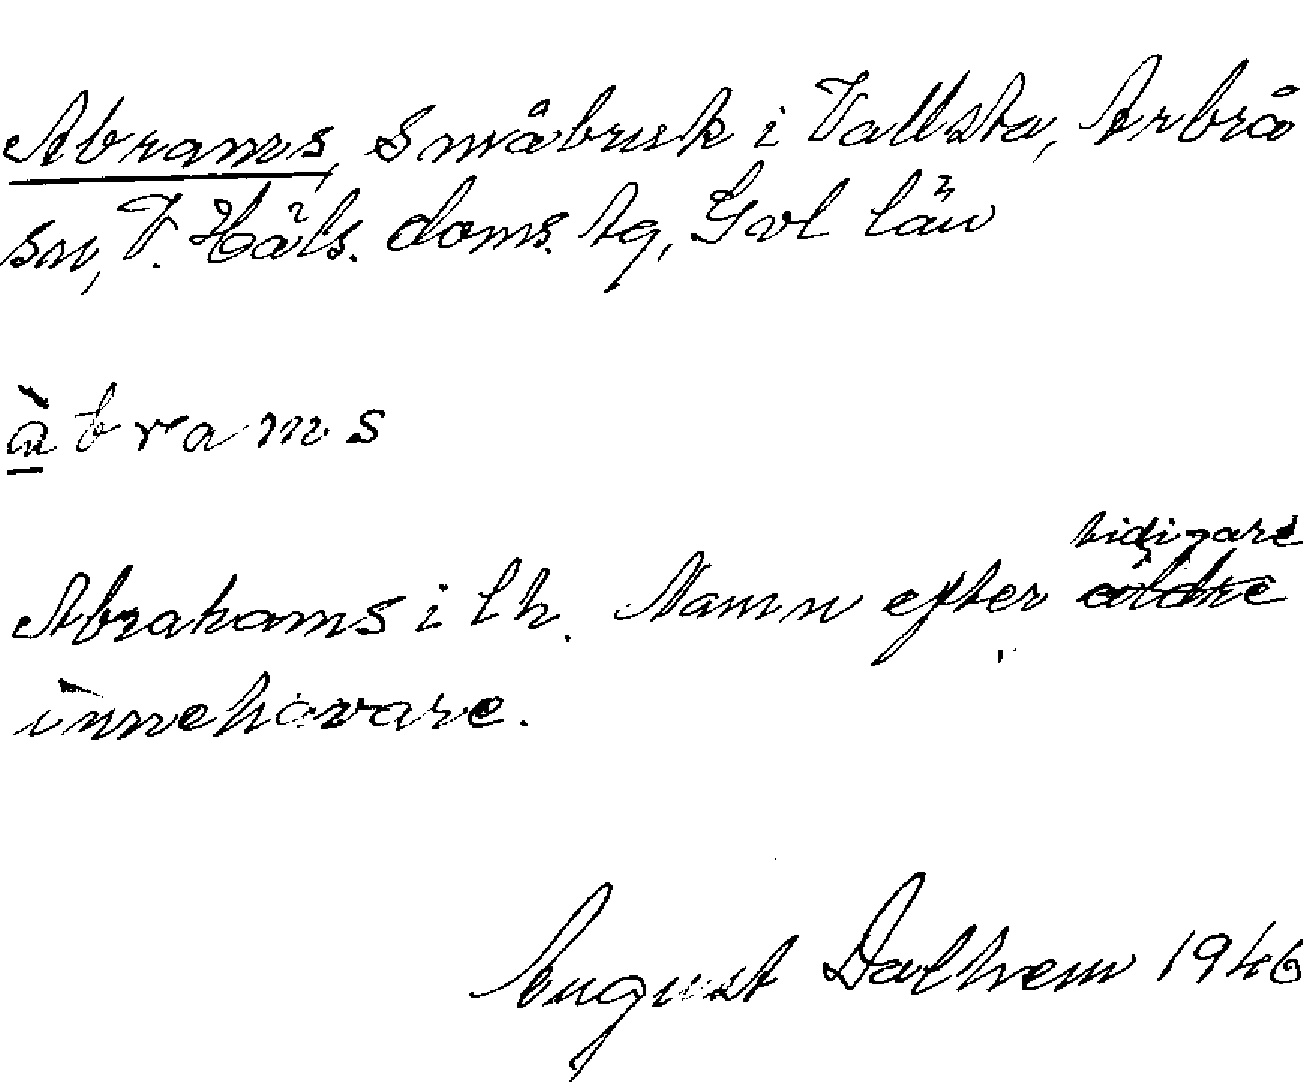 Abrams, Småbruk i Vallsta, Arbrå
sn, V. Häls. doms. tg, Gvl län
àbrams
tidigare
Abrahams i lh. Namn efter äldre
innehavare.
August Dalhem 1946